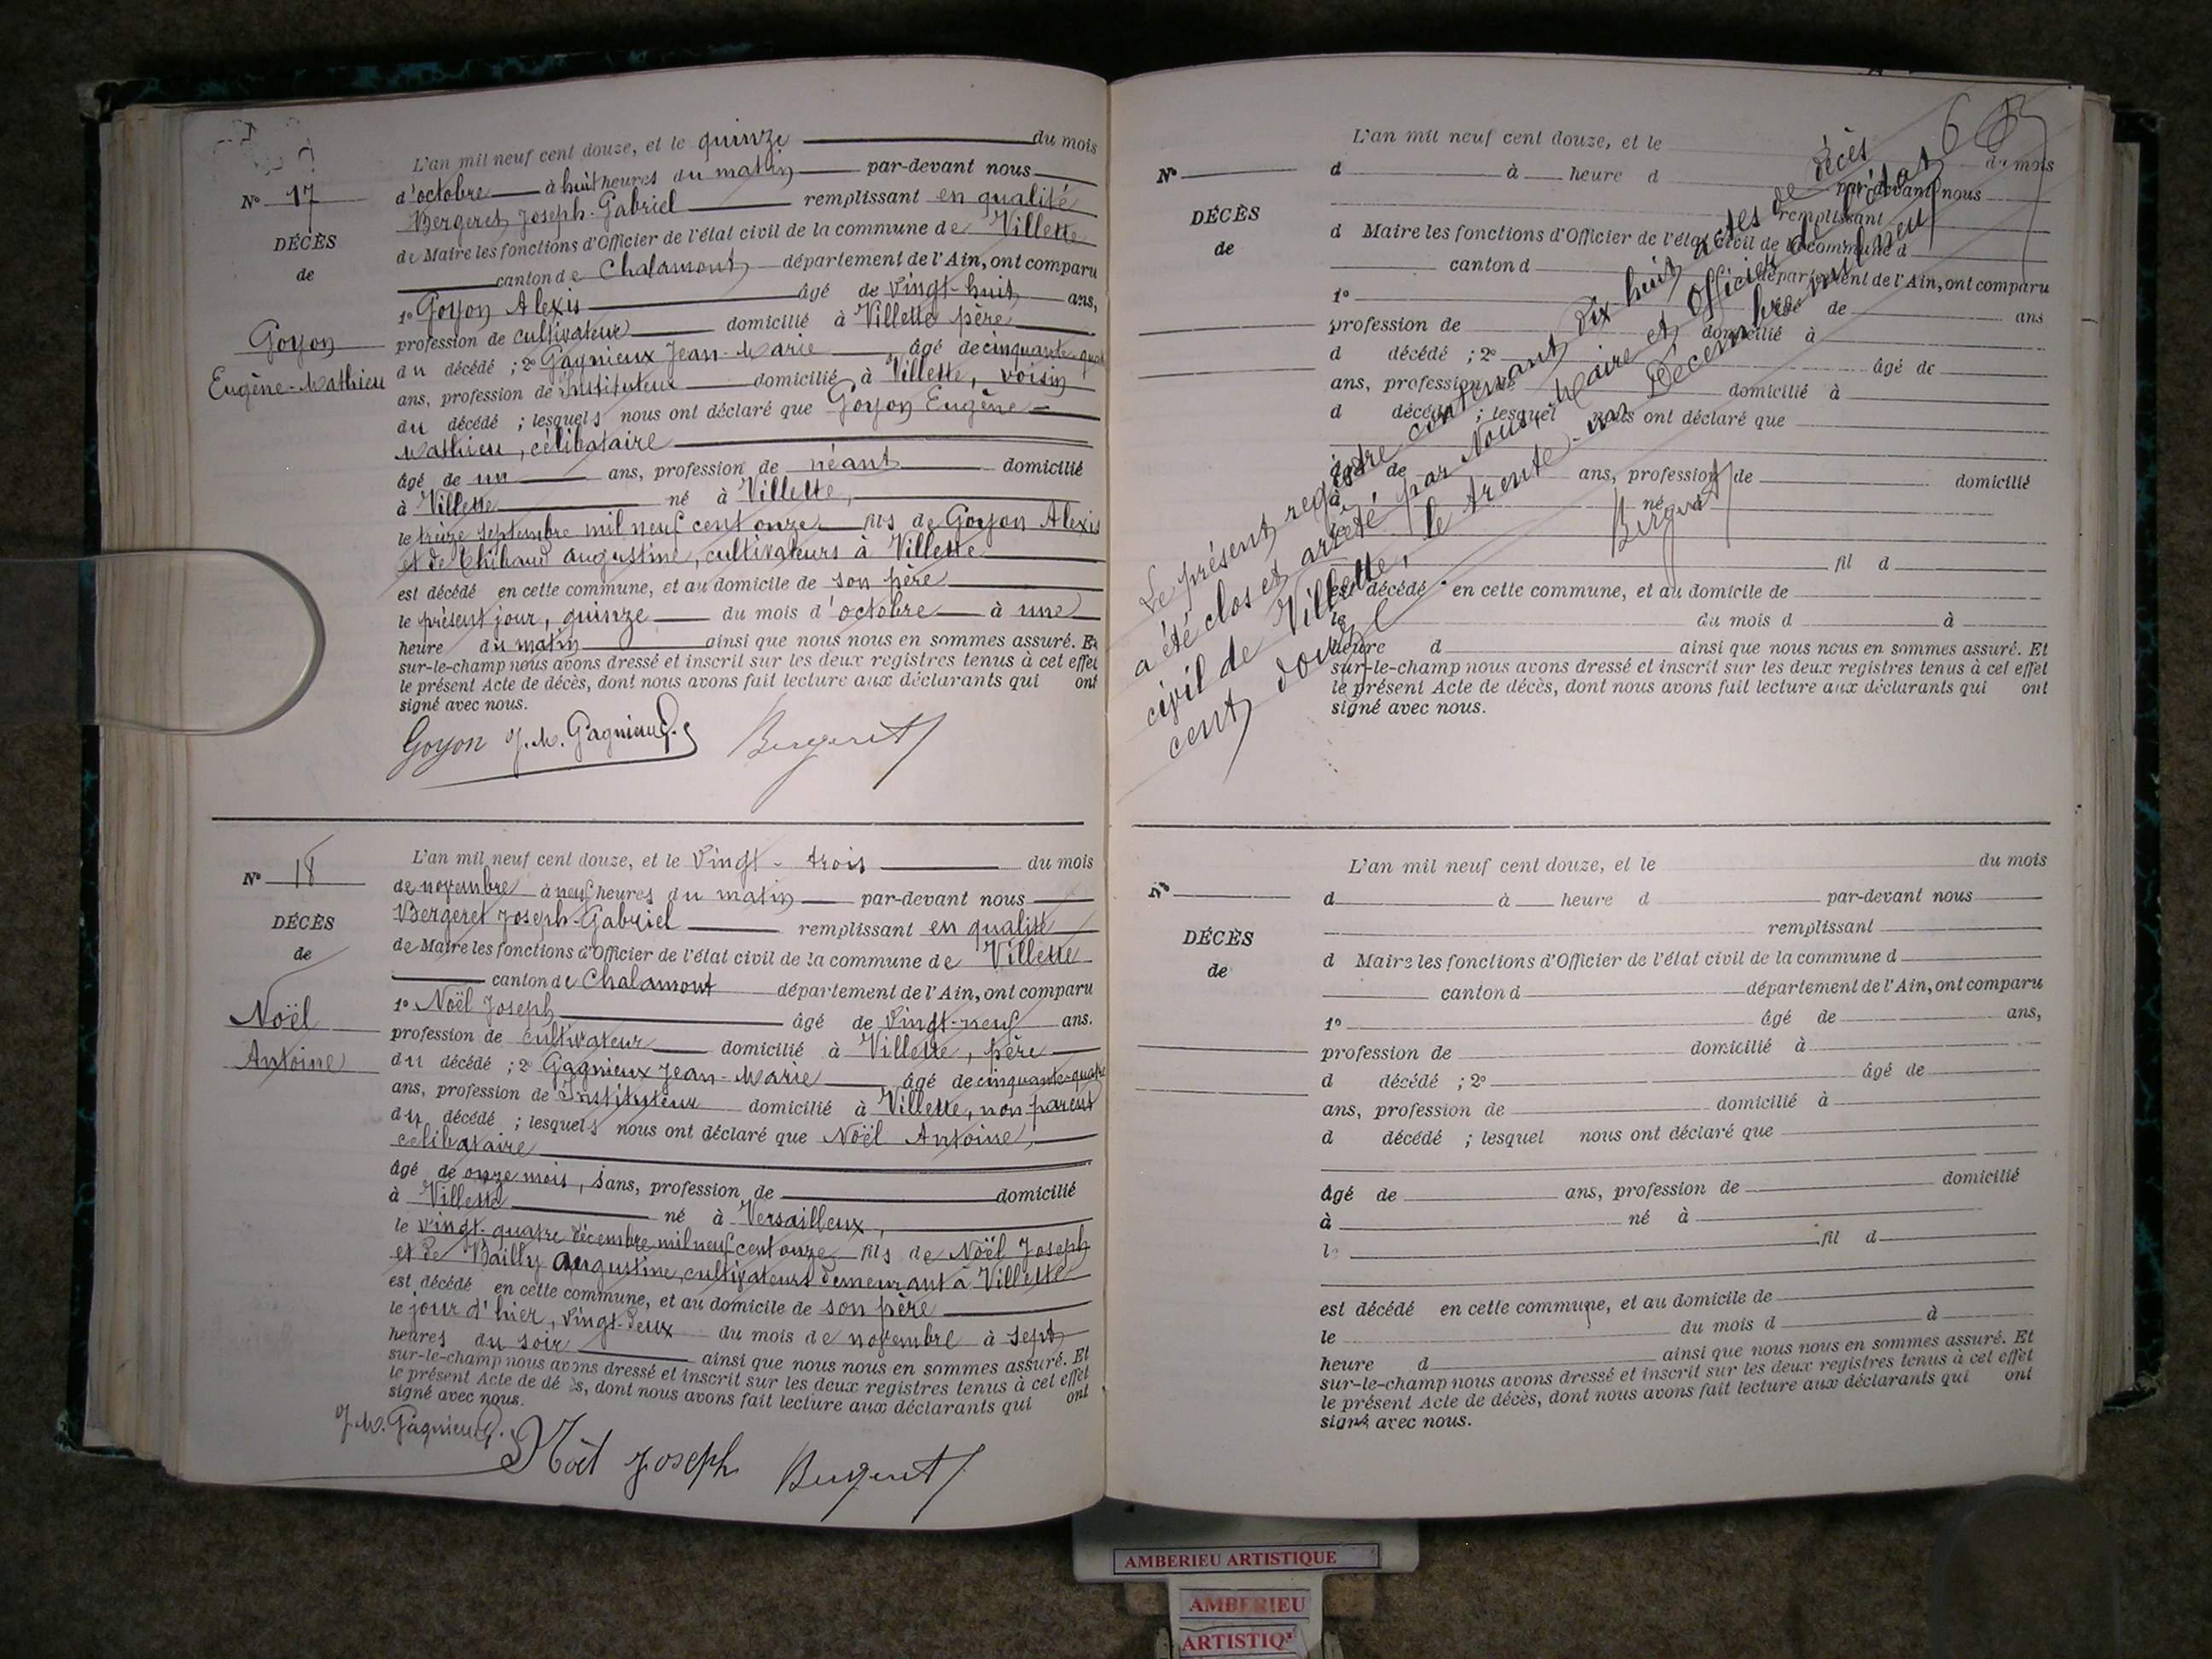 L'an mil neuf cent douze, et le quinze du mois
d'octobre à huit heures du matin par-devant nous
Bergeret Joseph-Gabriel remplissant en qualité
de Maire les fonctions d'Officier de l'état civil de la commune de Villette
canton de Chalamont département de l'Ain, ont comparu
1º Goyon Alexis âgé de vingt-huit ans,
profession de cultivateur domicilié à Villette père
du décédé ; 2º Gagnieux Jean-Marie âgé de cinquante-quatre
ans, profession de Instituteur domicilié à Villette, voisin
du décédé ; lesquels nous ont déclaré que Goyon Eugène-
Mathieu, célibataire
âgé de un ans, profession de néant domicilié
à Villette né à Villette,
le treize septembre mil neuf cent onze fils de Goyon Alexis
et de Thibaud Augustine, cultivateurs à Villette
est décédé en cette commune, et au domicile de son père
le présent jour, quinze du mois d'octobre à une
heure du matin ainsi que nous nous en sommes assuré. Et
sur-le-champ nous avons dressé et inscrit sur les deux registres tenus à cet effet
le présent Acte de décès, dont nous avons fait lecture aux déclarants qui ont
signé avec nous.
Goyon J. M. Gagnieux Bergeret
Nº 17
DÉCÈS
de
Goyon
Eugène-Mathieu
L'an mil neuf cent douze, et le vingt-trois du mois
de novembre à neuf heures du matin par-devant nous
Bergeret Joseph-Gabriel remplissant en qualité
de Maire les fonctions d'Officier de l'état civil de la commune de Villette
canton de Chalamont département de l'Ain, ont comparu
1º Noël Joseph âgé de vingt-neuf ans.
profession de cultivateur domicilié à Villette, père
du décédé ; 2º Gagnieux Jean-Marie âgé de cinquante-quatre
ans, profession de Instituteur domicilié à Villette, non parent
du décédé ; lesquels nous ont déclaré que Noël Antoine,
célibataire
âgé de onze mois, sans, profession de domicilié
à Villette né à Versailleux,
le vingt-quatre décembre mil neuf cent onze fils de Noël Joseph
et de Bailly Augustine, cultivateurs demeurant à Villette
est décédé en cette commune, et au domicile de son père
le jour d'hier, vingt-deux du mois de novembre à sept
heures du soir ainsi que nous nous en sommes assuré. Et
sur-le-champ nous avons dressé et inscrit sur les deux registres tenus à cet effet
le présent Acte de décès, dont nous avons fait lecture aux déclarants qui ont
signé avec nous.
J. M. Gagnieux Noël Joseph Bergeret
Nº 18
DÉCÈS
de
Noël
Antoine
L'an mil neuf cent douze, et le du mois
d à heure d par-devant nous
remplissant
d Maire les fonctions d'Officier de l'état civil de la commune d
canton d département de l'Ain, ont comparu
1º âgé de ans
profession de domicilié à
d décédé ; 2º âgé de
ans, profession de domicilié à
d décédé ; lesquel nous ont déclaré que
âgé de ans, profession de domicilié
à né à
le fil d
est décédé en cette commune, et au domicile de
le du mois d à
heure d ainsi que nous nous en sommes assuré. Et
sur-le-champ nous avons dressé et inscrit sur les deux registres tenus à cet effet
le présent Acte de décès, dont nous avons fait lecture aux déclarants qui ont
signé avec nous.
Nº
DÉCÈS
de
Le présent registre contenant dix huit actes de décès
a été clos et arrêté par Nous, Maire et Officier de l'état
civil de Villette, le trente-un Décembre mil neuf
cent douze
Bergeret
L'an mil neuf cent douze, et le du mois
d à heure d par-devant nous
remplissant
d Maire les fonctions d'Officier de l'état civil de la commune d
canton d département de l'Ain, ont comparu
1º âgé de ans,
profession de domicilié à
d décédé ; 2º âgé de
ans, profession de domicilié à
d décédé ; lesquel nous ont déclaré que
âgé de ans, profession de domicilié
à né à
le fil d
est décédé en cette commune, et au domicile de
le du mois d à
heure d ainsi que nous nous en sommes assuré. Et
sur-le-champ nous avons dressé et inscrit sur les deux registres tenus à cet effet
le présent Acte de décès, dont nous avons fait lecture aux déclarants qui ont
signé avec nous.
Nº
DÉCÈS
de
AMBERIEU ARTISTIQUE
AMBERIEU
ARTISTIQ